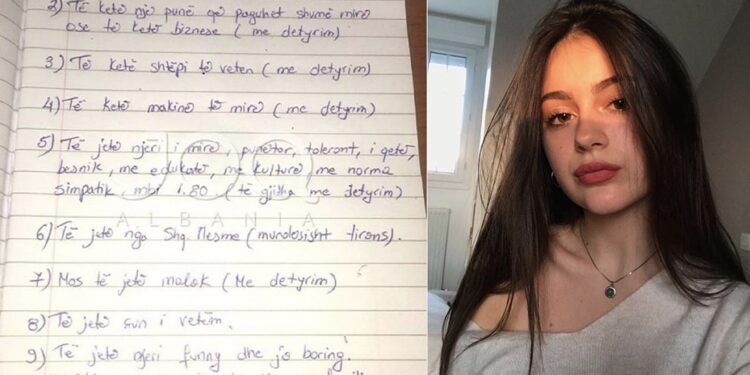 2) Të ketë një punë që paguhet shumë mirë
ose të ketë biznese (me detyrim)
3) Të ketë shtëpi të veten (me detyrim)
4) Të ketë makinë të mirë (me detyrim)
5) Të jetë njeri i mirë, punëtor, tolerant, i qetë,
besnik, me edukatë, me kulturë me norma
simpatik, mbi 1.80 (të gjitha me detyrim)
ALBANIA
6) Të jetë nga Shq. Mesme (mundësisht tirons).
7) Mos të jetë malok (Me detyrim)
8) Të jetë çun i vetëm.
9) Të jetë njeri funny dhe jo boring.